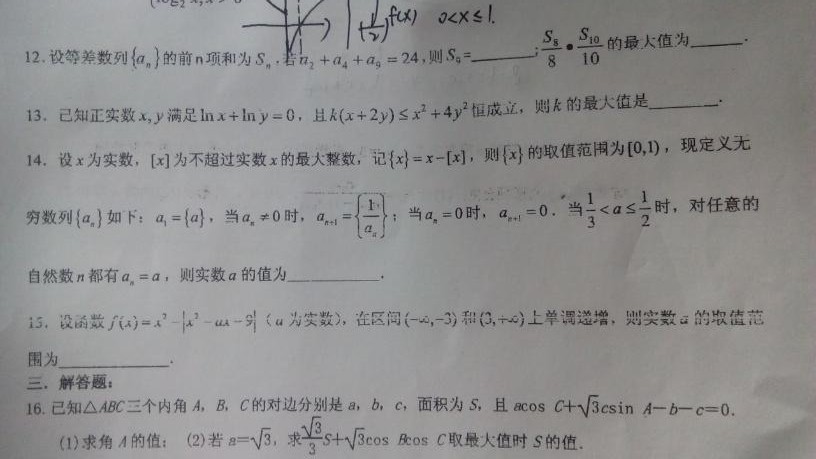 f(x) 0<x≤1.
12. 设等差数列{aₙ}的前n项和为Sₙ,若a₂+a₄+a₉=24,则S₉=______; S₈/8 • S₁₀/10 的最大值为______.
13. 已知正实数x,y满足ln x+ln y=0, 且k(x+2y)≤x²+4y²恒成立, 则k的最大值是______.
14. 设x为实数, [x]为不超过实数x的最大整数, 记{x}=x-[x], 则{x}的取值范围为[0,1), 现定义无
穷数列{aₙ}如下: a₁={a}, 当aₙ≠0时, aₙ₊₁={1/aₙ}; 当aₙ=0时, aₙ₊₁=0. 当1/3<a≤1/2时, 对任意的
自然数n都有aₙ=a, 则实数a的值为______.
15. 设函数f(x)=x³-|x³-ax-9|(a为实数), 在区间(-∞,-3)和(3,+∞)上单调递增, 则实数a的取值范
围为______.
三. 解答题:
16. 已知△ABC三个内角A, B, C的对边分别是a, b, c, 面积为S, 且acos C+√3csin A-b-c=0.
(1)求角A的值; (2)若a=√3, 求√3/3S+√3cos Bcos C取最大值时S的值.